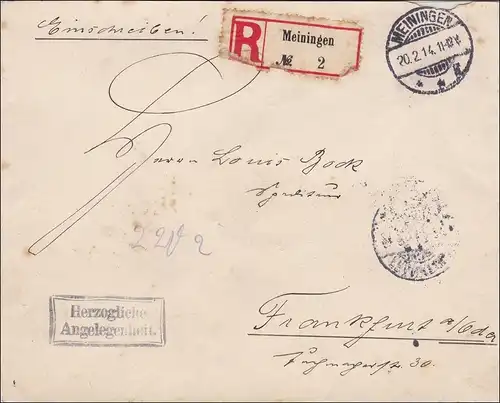 Einschreiben!
R
Meiningen
№ 2
MEININGEN
20.2.14. 11-12V.
Herrn Louis Bock
Spediteur
Herzogliche
Angelegenheit.
Frankfurt a/Oder
30.